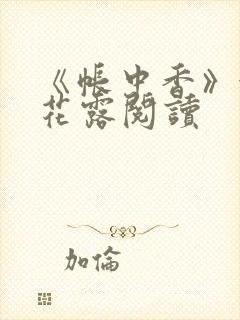 《帳中香》
花露閱讀
加倫